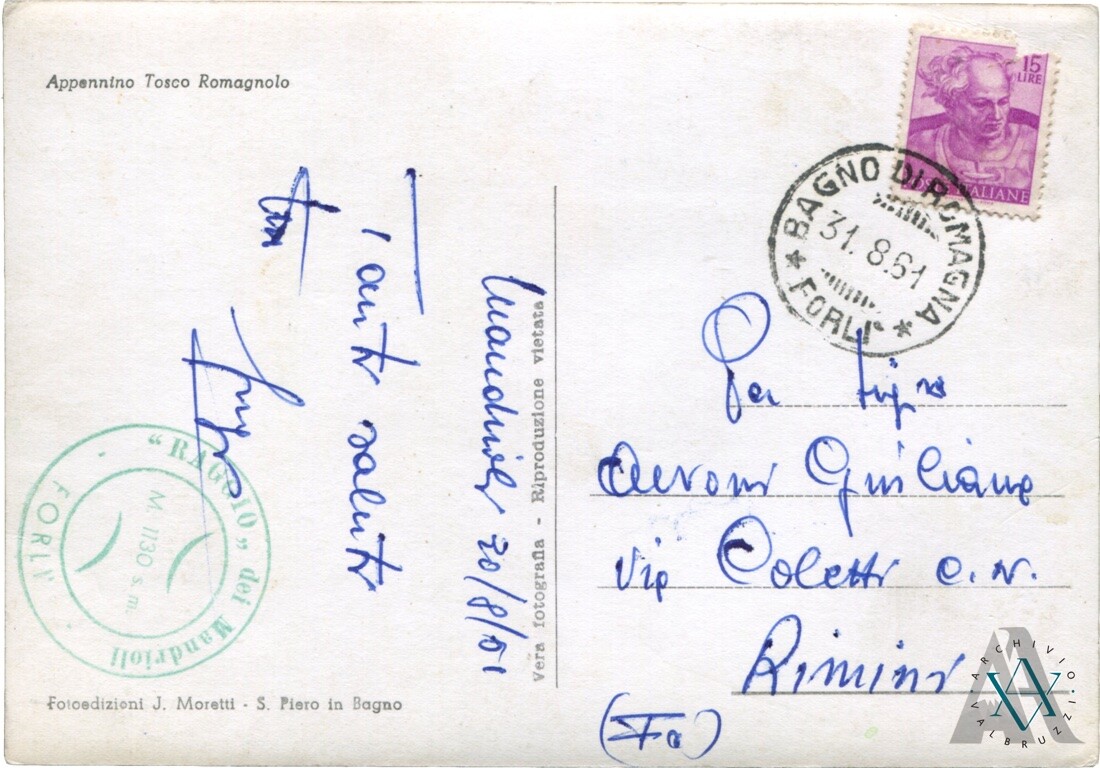 Appennino Tosco Romagnolo
15
LIRE
POSTE ITALIANE
BAGNO DI ROMAGNA
31.8.61
FORLI'
Tanti saluti
"RAGGIO" dei Mandrioli
FORLI'
M. 1130 s. m.
Vera fotografia - Riproduzione vietata
Giuliano
Via Coletti C. N.
Rimini
(Fo)
Fotoedizioni J. Moretti - S. Piero in Bagno
ARCHIVIO ALBRUZZI.O